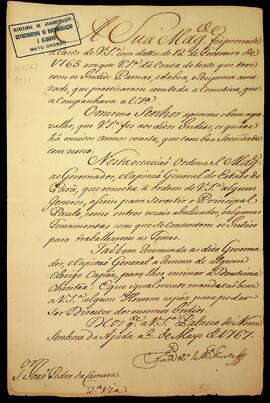 SECRETARIA DE ADMINISTRAÇÃO
DEPARTAMENTO DE DOCUMENTAÇÃO
E ARQUIVO
MATO GROSSO
A Sua Mag.e foi prezente
a Carta de V.S.a com data de 12 de Fevereiro de
1765 em que V.S.a dá Conta do trato que tem
com os Indios Pamas, e da boa, e reciproca amiz
ade, que practicaram com toda a Comitiva, que
a Companhava a V.S.a
O mesmo Senhor aprovou o bom aga-
zalho, que V.S.a fes aos ditos Indios, os quaes
há muitos annos consta, que tem boa Socieda-
de com nosco.
Nesta ocaziaõ Ordena S. Mag.e
ao Governador, e Capitaõ General do Estado do
Pará, que remeta à Ordem de V.S.a alguns
generos, assim para se vestir o Principal
Paulo, como outros mais abalizados, e algumas
Ferramentas com que se Contentem os Indios
para trabalharem as Terras.
Taõ bem Recomenda ao dito Governa-
dor, e Capitaõ General a remessa de algum
Clerigo Capaz, para lhes ensinar a Doutrina
Christãa: E que igualmente mande
a V.S.a algum Homem capaz para poder
Ser Director dos mesmos Indios.
D.s g.e a V.S.a Palacio de Nossa
Senhora da Ajuda a 2 de Mayo de 1767.
S.r João Pedro da Camara
2.a Via